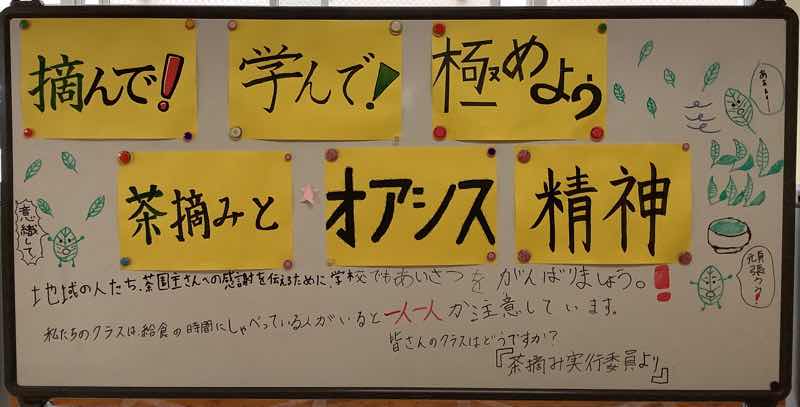 摘んで!
学んで!
極めよう
茶摘みと
オアシス
精神
意識して!
頑張ろう!
地域の人たち、茶園主さんへの感謝を伝えるために、学校でもあいさつをがんばりましょう。!
私たちのクラスは、給食の時間にしゃべっている人がいると一人一人が注意しています。
皆さんのクラスはどうですか?
『茶摘み実行委員より』